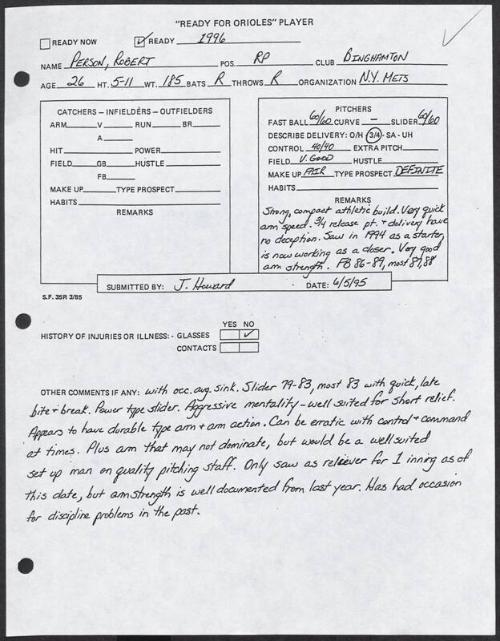 "READY FOR ORIOLES" PLAYER
READY NOW READY 1996
NAME PERSON, ROBERT POS. RP CLUB BINGHAMTON
AGE 26 HT. 5-11 WT. 185 BATS R THROWS R ORGANIZATION N.Y. METS
CATCHERS - INFIELDERS - OUTFIELDERS
ARM V RUN BR
A
HIT POWER
FIELD GB HUSTLE
FB
MAKE UP TYPE PROSPECT
HABITS
REMARKS
PITCHERS
FAST BALL 60/60 CURVE - SLIDER 60/60
DESCRIBE DELIVERY: O/H 3/4 - SA - UH
CONTROL 40/40 EXTRA PITCH
FIELD V. GOOD HUSTLE
MAKE UP FAIR TYPE PROSPECT DEFINITE
HABITS
REMARKS
Strong, compact athletic build. Very quick
arm speed. 3/4 release pt. + delivery have
no deception. Saw in 1994 as a starter,
is now working as a closer. Very good
arm strength. FB 86-89, most 87, 88
SUBMITTED BY: J. Howard DATE: 6/5/95
S.F. 35R 3/85
YES NO
HISTORY OF INJURIES OR ILLNESS: - GLASSES ✓
CONTACTS
OTHER COMMENTS IF ANY: with occ. avg. sink. Slider 79-83, most 83 with quick, late
bite + break. Power type slider. Aggressive mentality - well suited for short relief.
Appears to have durable type arm + arm action. Can be erratic with control + command
at times. Plus arm that may not dominate, but would be a well suited
set up man on quality pitching staff. Only saw as reliever for 1 inning as of
this date, but arm strength is well documented from last year. Has had occasion
for discipline problems in the past.